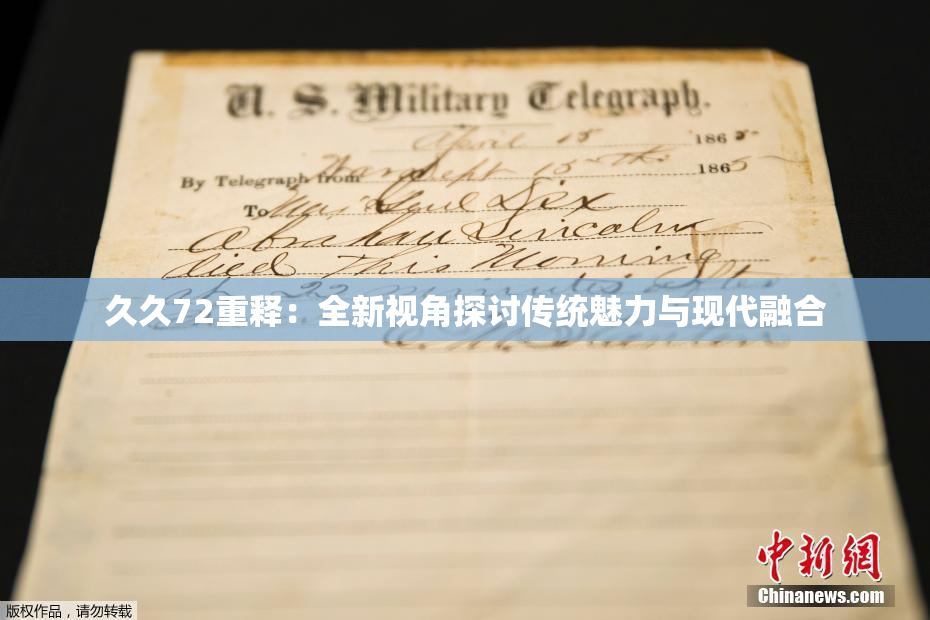 U. S. Military Telegraph.
April 15 1865
By Telegraph from War Dept 15th 1865
To Maj Genl Dix
Abraham Lincoln
died this Morning
at 22 minutes after
久久72重释：全新视角探讨传统魅力与现代融合
E. M. Stanton
中新网
Chinanews.com
版权作品，请勿转载